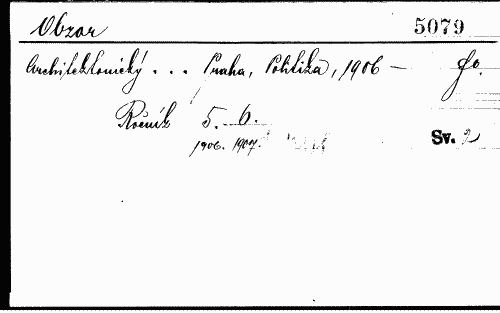 Obzor 5079
Architektonický . . . Praha, Politika, 1906 – fo.
Ročník 5. – 6.
1906. 1907.
Sv. 2